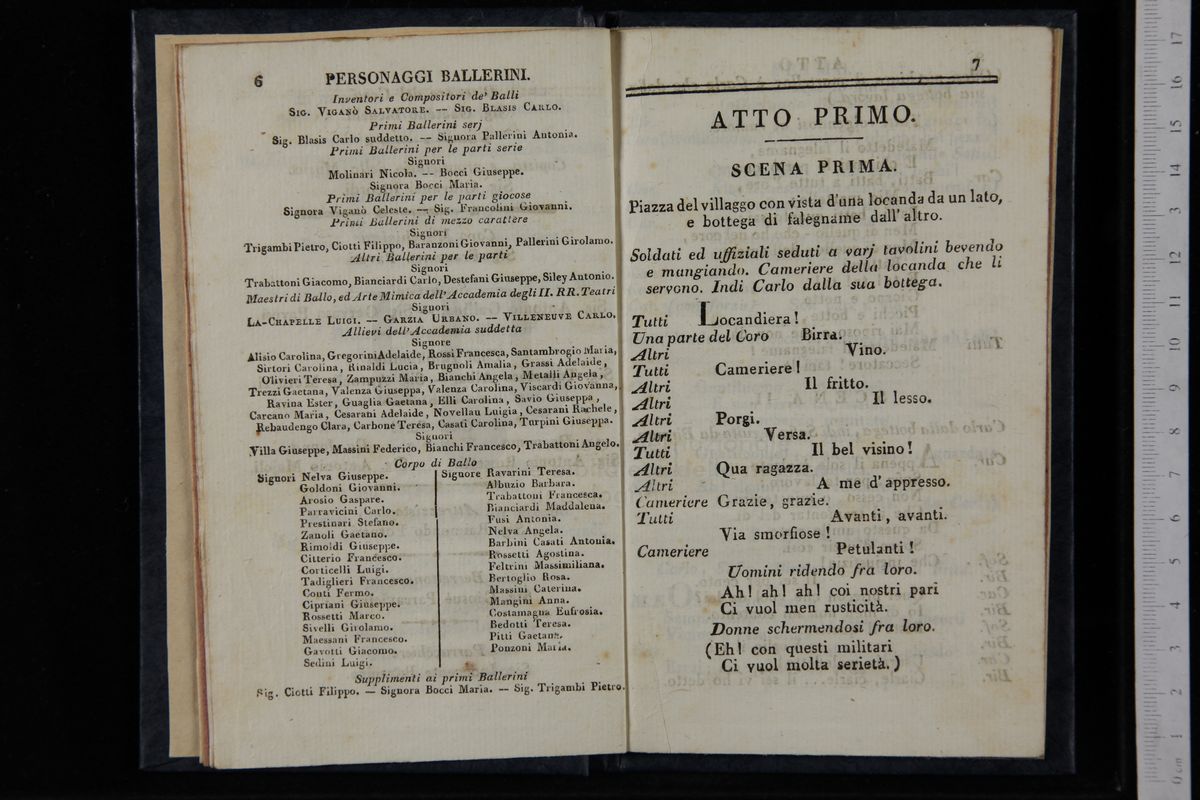 6
PERSONAGGI BALLERINI.
Inventori e Compositori de' Balli
Sig. Viganò Salvatore. — Sig. Blasis Carlo.
Primi Ballerini serj
Sig. Blasis Carlo suddetto. — Signora Pallerini Antonia.
Primi Ballerini per le parti serie
Signori
Molinari Nicola. — Bocci Giuseppe.
Signora Bocci Maria.
Primi Ballerini per le parti giocose
Signora Viganò Celeste. — Sig. Francolini Giovanni.
Primi Ballerini di mezzo carattere
Signori
Trigambi Pietro, Ciotti Filippo, Baranzoni Giovanni, Pallerini Girolamo.
Altri Ballerini per le parti
Signori
Trabattoni Giacomo, Bianciardi Carlo, Destefani Giuseppe, Siley Antonio.
Maestri di Ballo, ed Arte Mimica dell'Accademia degli II. RR. Teatri
Signori
La-Chapelle Luigi. — Garzia Urbano. — Villeneuve Carlo.
Allievi dell'Accademia suddetta
Signore
Alisio Carolina, Gregorini Adelaide, Rossi Francesca, Santambrogio Maria,
Sirtori Carolina, Rinaldi Lucia, Brugnoli Amalia, Grassi Adelaide,
Olivieri Teresa, Zampuzzi Maria, Bianchi Angela, Metalli Angela,
Trezzi Gaetana, Valenza Giuseppa, Valenza Carolina, Viscardi Giovanna,
Ravina Ester, Guaglia Gaetana, Elli Carolina, Savio Giuseppa,
Carcano Maria, Cesarani Adelaide, Novellau Luigia, Cesarani Rachele,
Rebaudengo Clara, Carbone Teresa, Casati Carolina, Turpini Giuseppa.
Signori
Villa Giuseppe, Massini Federico, Bianchi Francesco, Trabattoni Angelo.
Corpo di Ballo
Signori Nelva Giuseppe.
Goldoni Giovanni.
Arosio Gaspare.
Parravicini Carlo.
Prestinari Stefano.
Zanoli Gaetano.
Rimoldi Giuseppe.
Citterio Francesco.
Corticelli Luigi.
Tadiglieri Francesco.
Conti Fermo.
Cipriani Giuseppe.
Rossetti Marco.
Sivelli Girolamo.
Maessani Francesco.
Gavotti Giacomo.
Sedini Luigi.
Signore Ravarini Teresa.
Albuzio Barbara.
Trabattoni Francesca.
Bianciardi Maddalena.
Fusi Antonia.
Nelva Angela.
Barbini Casati Antonia.
Rossetti Agostina.
Feltrini Massimiliana.
Bertoglio Rosa.
Massini Caterina.
Mangini Anna.
Costamagna Eufrosia.
Bedotti Teresa.
Pitti Gaetana.
Ponzoni Maria.
Supplimenti ai primi Ballerini
Sig. Ciotti Filippo. — Signora Bocci Maria. — Sig. Trigambi Pietro.
7
ATTO PRIMO.
SCENA PRIMA.
Piazza del villaggo con vista d'una locanda da un lato,
e bottega di falegname dall' altro.
Soldati ed uffiziali seduti a varj tavolini bevendo
e mangiando. Cameriere della locanda che li
servono. Indi Carlo dalla sua bottega.
Tutti Locandiera!
Una parte del Coro Birra.
Altri Vino.
Tutti Cameriere!
Altri Il fritto.
Altri Il lesso.
Altri Porgi.
Altri Versa.
Tutti Il bel visino!
Altri Qua ragazza.
Altri A me d' appresso.
Cameriere Grazie, grazie.
Tutti Avanti, avanti.
Via smorfiose!
Cameriere Petulanti!
Uomini ridendo fra loro.
Ah! ah! ah! coi nostri pari
Ci vuol men rusticità.
Donne schermendosi fra loro.
(Eh! con questi militari
Ci vuol molta serietà.)
0 cm 1 2 3 4 5 6 7 8 9 10 11 12 13 14 15 16 17